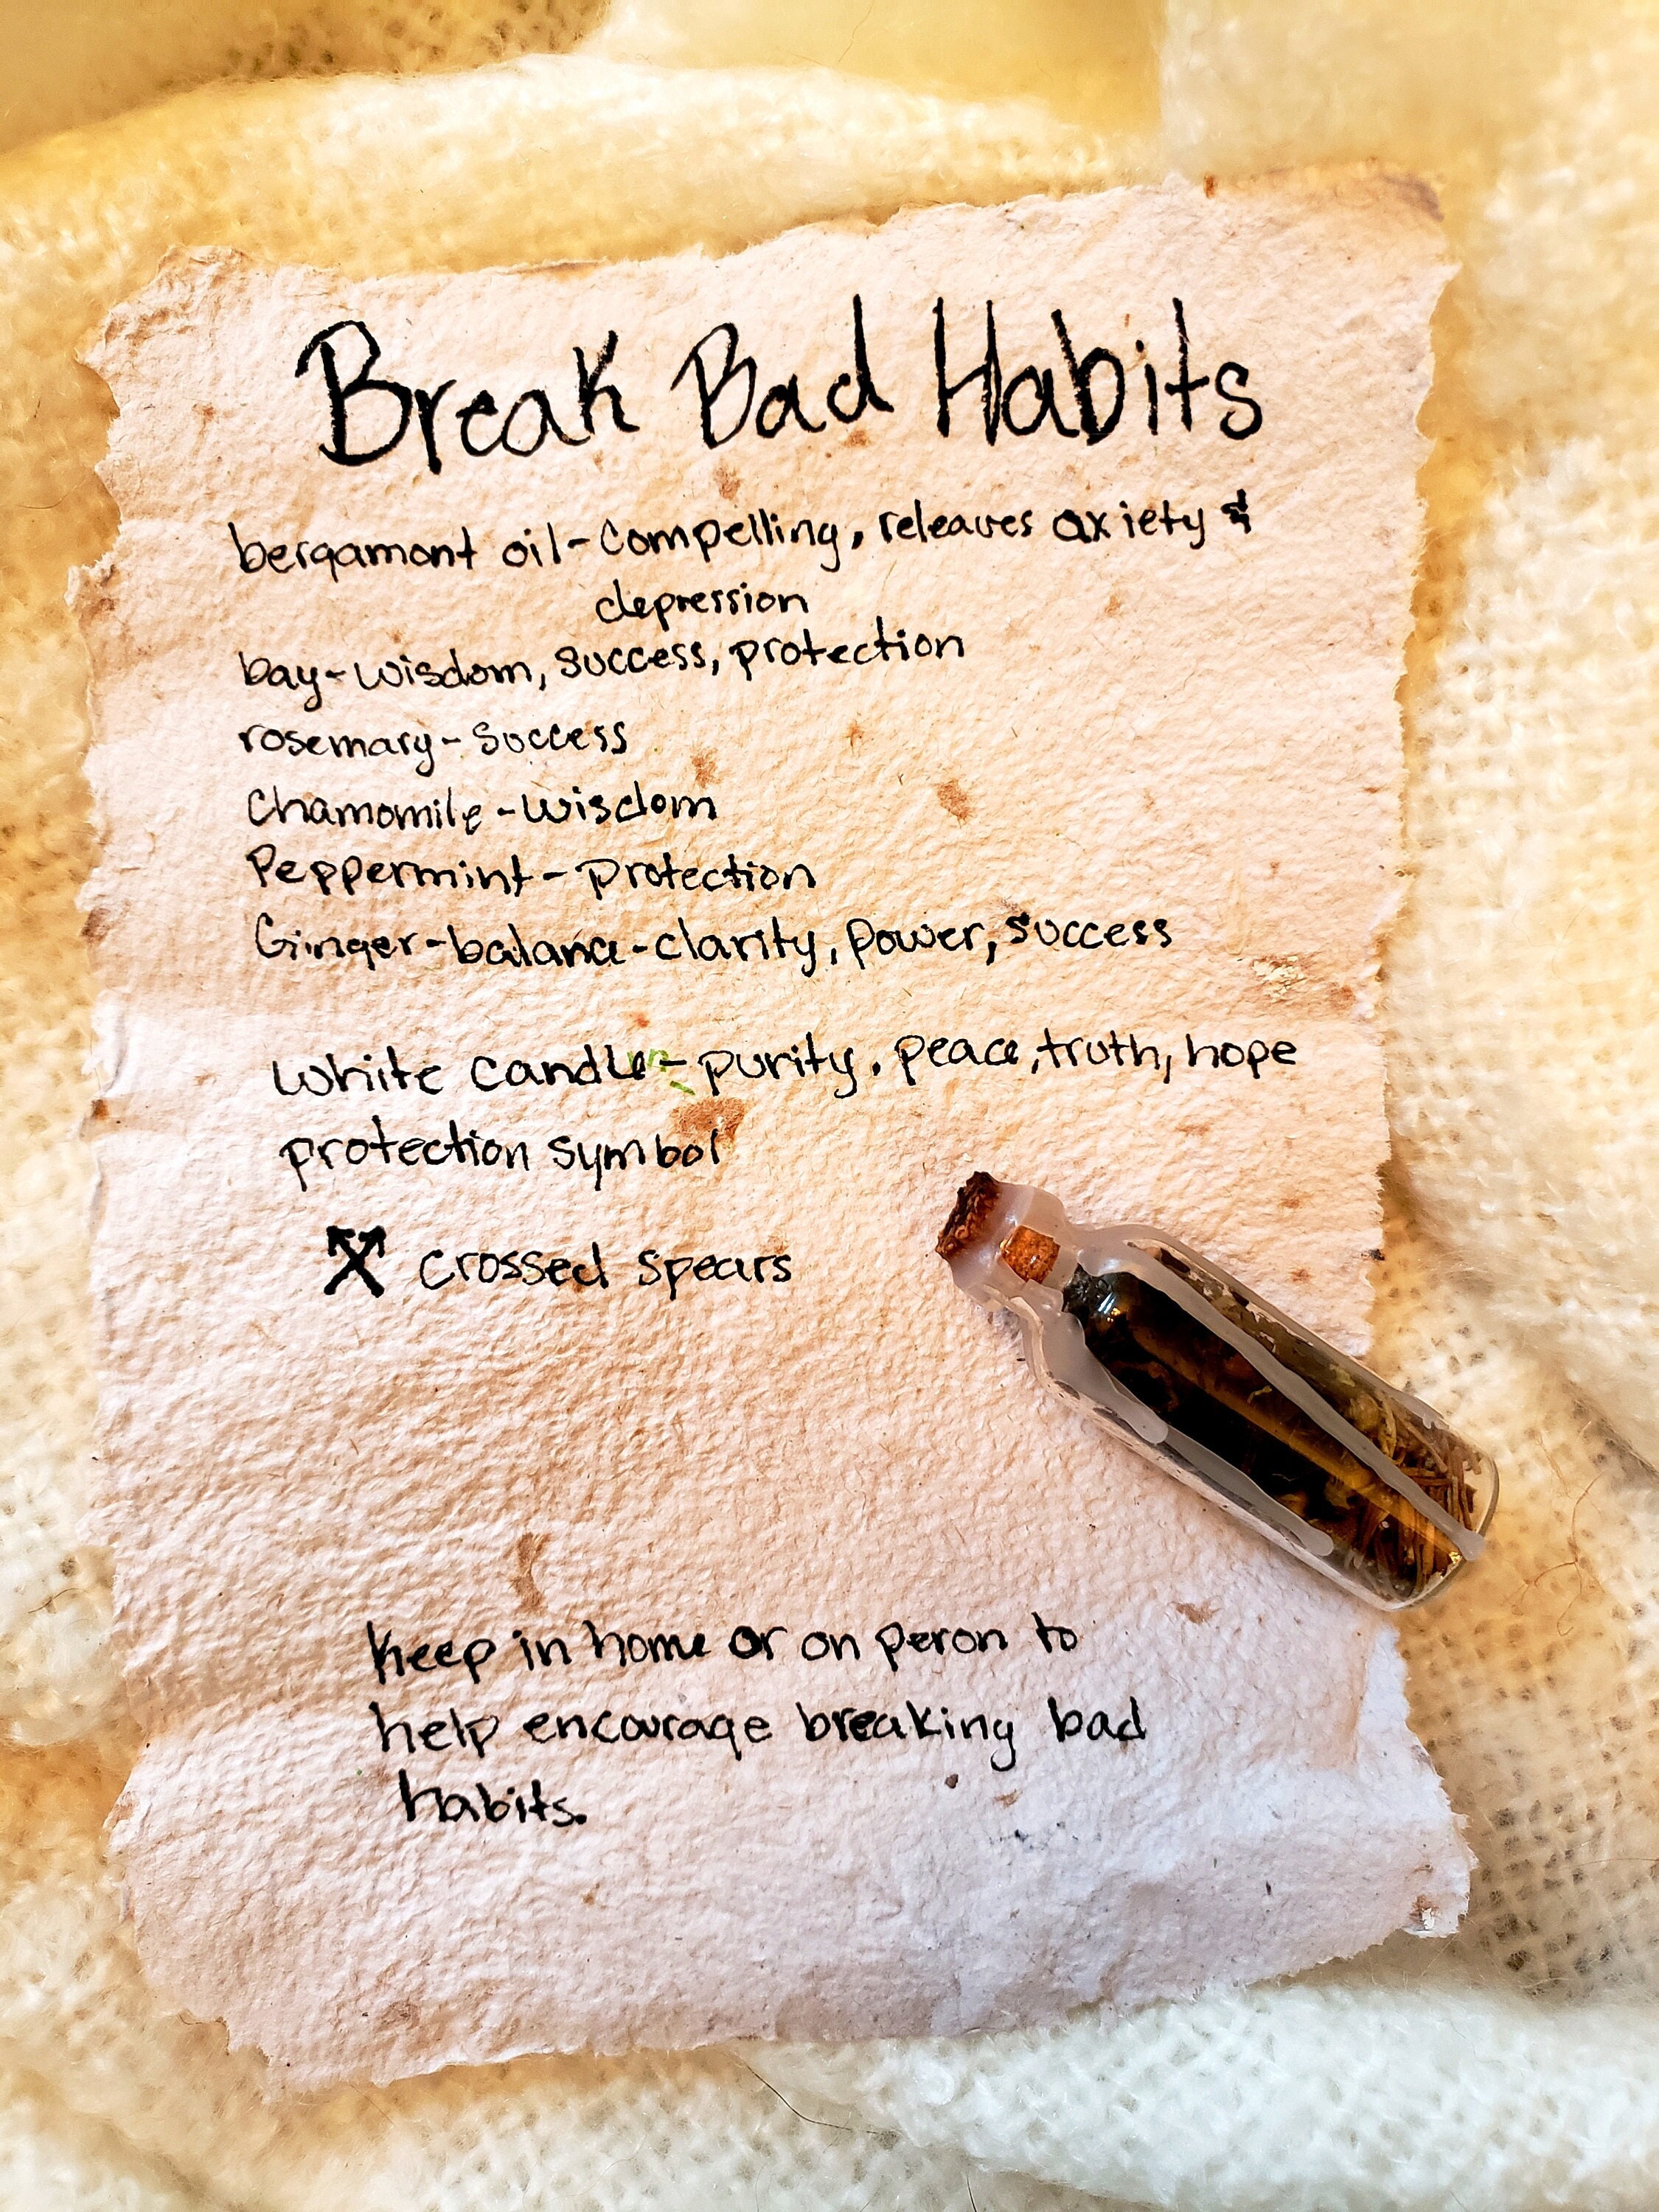 Break Bad Habits
bergamont oil-Compelling, releaves axiety &
depression
bay-wisdom, success, protection
rosemary-Success
Chamomile-wisdom
Peppermint-protection
Ginger-balance-clarity, power, success
White candle-purity, peace, truth, hope
protection symbol
crossed spears
Keep in home or on peron to
help encourage breaking bad
habits.